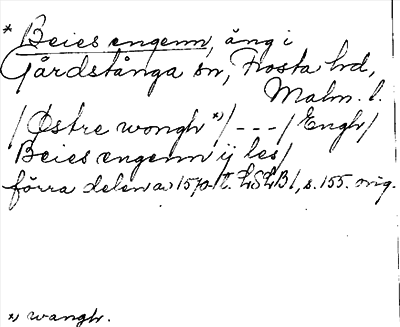 * Beies engenn, äng i
Gårdstånga sn, Frosta hd,
Malm. l.
/Østre wongh *)/ - - - / Engh/
Beies engenn ij les/
förra delen av 1570-t. LSLB 1, s. 155. orig.
*) wangh.